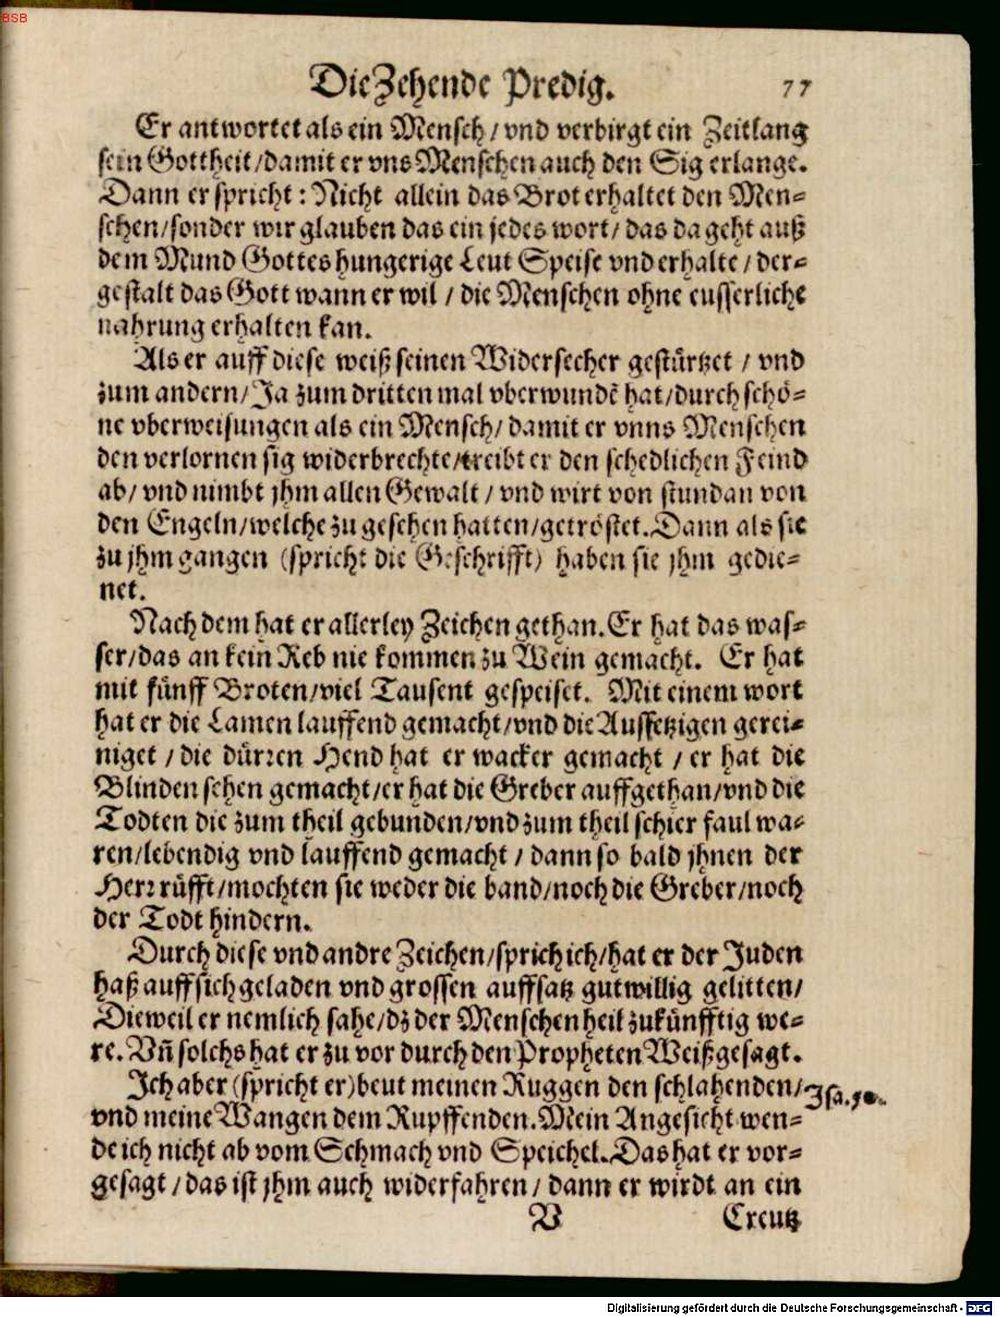 BSB
Die Zehende Predig. 77
Er antwortet als ein Mensch / vnd verbirgt ein Zeitlang
sein Gottheit / damit er vns Menschen auch den Sig erlange.
Dann er spricht : Nicht allein das Brot erhaltet den Men-
schen / sonder wir glauben das ein jedes wort / das da geht auß
dem Mund Gottes hungerige Leut Speise vnd erhalte / der-
gestalt das Gott wann er wil / die Menschen ohne eusserliche
nahrung erhalten kan.
Als er auff diese weiß seinen Widersecher gestürtzet / vnd
zum andern / Ja zum dritten mal vberwundẽ hat / durch schö-
ne vberweisungen als ein Mensch / damit er vnns Menschen
den verlornen sig widerbrechte / treibt er den schedlichen Feind
ab / vnd nimbt jhm allen Gewalt / vnd wirt von stundan von
den Engeln / welche zugesehen hatten / getröstet. Dann als sie
zu jhm gangen (spricht die Geschrifft) haben sie jhm gedie-
net.
Nach dem hat er allerley Zeichen gethan. Er hat das was-
ser / das an kein Reb nie kommen zu Wein gemacht. Er hat
mit fünff Broten / viel Tausent gespeiset. Mit einem wort
hat er die Lamen lauffend gemacht / vnd die Aussetzigen gerei-
niget / die dürren Hend hat er wacker gemacht / er hat die
Blinden sehen gemacht / er hat die Greber auffgethan / vnd die
Todten die zum theil gebunden / vnd zum theil schier faul wa-
ren / lebendig vnd lauffend gemacht / dann so bald jhnen der
Herr rüfft / mochten sie weder die band / noch die Greber / noch
der Todt hindern.
Durch diese vnd andre Zeichen / sprich ich / hat er der Juden
haß auff sich geladen vnd grossen auffsatz gutwillig gelitten /
Dieweil er nemlich sahe / dz der Menschen heil zukünfftig we-
re. Vñ solchs hat er zu vor durch den Propheten Weißgesagt.
Ich aber (spricht er) beut meinen Ruggen den schlahenden / Isa. 50.
vnd meine Wangen dem Rupffenden. Mein Angesicht wen-
de ich nicht ab vom Schmach vnd Speichel. Das hat er vor-
gesagt / das ist jhm auch widerfahren / dann er wirdt an ein
V Creutz
Digitalisierung gefördert durch die Deutsche Forschungsgemeinschaft - DFG